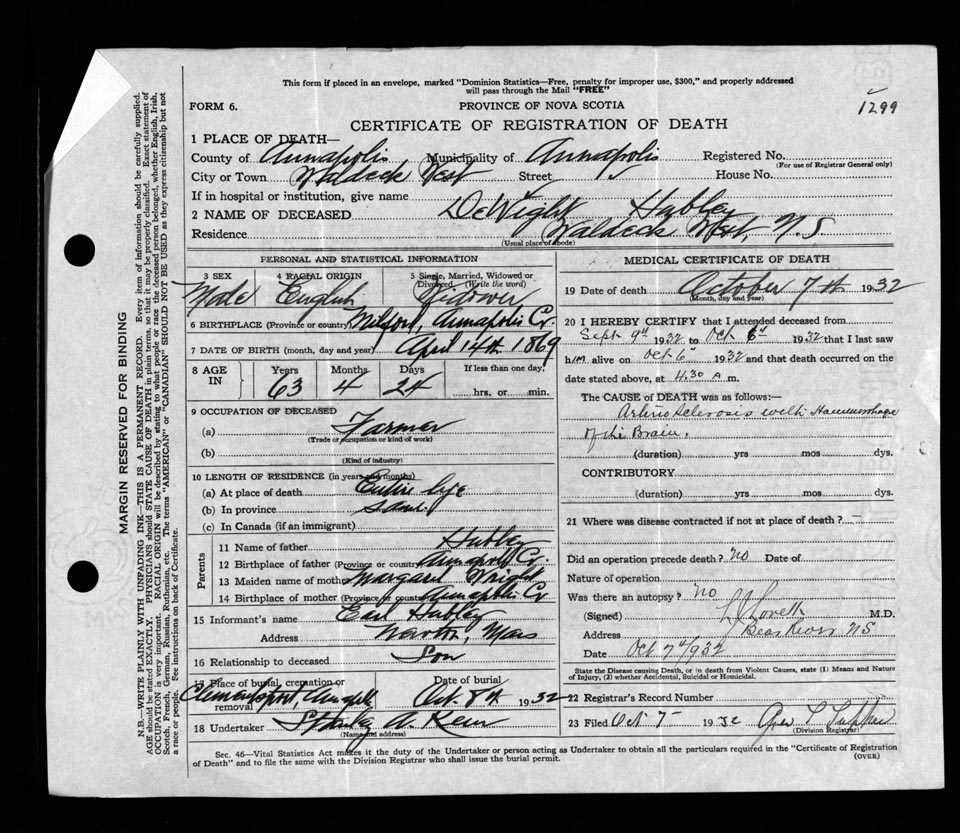 This form if placed in an envelope, marked "Dominion Statistics—Free, penalty for improper use, $300," and properly addressed
will pass through the Mail "FREE"
FORM 6.
PROVINCE OF NOVA SCOTIA
1299
CERTIFICATE OF REGISTRATION OF DEATH
1 PLACE OF DEATH—
County of Annapolis Municipality of Annapolis Registered No.
(For use of Registrar General only)
City or Town Waldeck West Street House No.
If in hospital or institution, give name
2 NAME OF DECEASED DeWight Hubley
Residence Waldeck West, N.S
(Usual place of abode)
PERSONAL AND STATISTICAL INFORMATION
3 SEX Male
4 RACIAL ORIGIN English
5 Single, Married, Widowed or Divorced (Write the word)
6 BIRTHPLACE (Province or country) Milford, Annapolis Co.
7 DATE OF BIRTH (month, day and year) April 14th 1869
8 AGE IN Years 63 Months 4 Days 24 If less than one day, hrs. or min.
9 OCCUPATION OF DECEASED
(a) Farmer
(Trade occupation or kind of work)
(b)
(Kind of industry)
10 LENGTH OF RESIDENCE (in years and months)
(a) At place of death Entire life
(b) In province same
(c) In Canada (if an immigrant)
Parents
11 Name of father Hubley
12 Birthplace of father (Province or country) Annapolis Co.
13 Maiden name of mother Margaret Wright
14 Birthplace of mother (Province or country) Annapolis Co
15 Informant's name Earl Hubley
Address Mass
16 Relationship to deceased Son
17 Place of burial, cremation or removal Clementsport,
Date of burial Oct 8th 1932
18 Undertaker Stanley A.
(Name and address)
MEDICAL CERTIFICATE OF DEATH
19 Date of death October 7th 1932
(Month, day and year)
20 I HEREBY CERTIFY that I attended deceased from
Sept 9th 1932 to Oct 6th 1932 that I last saw
him alive on Oct 6th 1932 and that death occurred on the
date stated above, at 4.30 A m.
The CAUSE of DEATH was as follows:—
Arterio Sclerosis with Haemorrhage
of the Brain.
(duration) yrs mos dys.
CONTRIBUTORY
(duration) yrs mos dys.
21 Where was disease contracted if not at place of death? —
Did an operation precede death? No Date of
Nature of operation
Was there an autopsy? No
(Signed) L J Lovett M.D.
Address Bear River NS
Date Oct 7th/932
State the Disease causing Death, or in death from Violent Causes, state (1) Means and Nature
of Injury, (2) whether Accidental, Suicidal or Homicidal.
22 Registrar's Record Number
23 Filed Oct 7 – 1932
(Division Registrar)
Sec. 46—Vital Statistics Act makes it the duty of the Undertaker or person acting as Undertaker to obtain all the particulars required in the "Certificate of Registration
of Death" and to file the same with the Division Registrar who shall issue the burial permit.
(OVER)
MARGIN RESERVED FOR BINDING
N.B.—WRITE PLAINLY WITH UNFADING INK—THIS IS A PERMANENT RECORD. Every item of information should be carefully supplied.
AGE should be stated EXACTLY. PHYSICIANS should STATE CAUSE OF DEATH in plain terms, so that it may be properly classified. Exact statement of
OCCUPATION is very important. RACIAL ORIGIN will be described by stating to what people or race the deceased person belonged, whether English, Irish,
Scotch, French, German, Russian, Ruthenian, etc. The terms "AMERICAN" or "CANADIAN" SHOULD NOT BE USED as they express citizenship but not
a race or people. See instructions on back of Certificate.